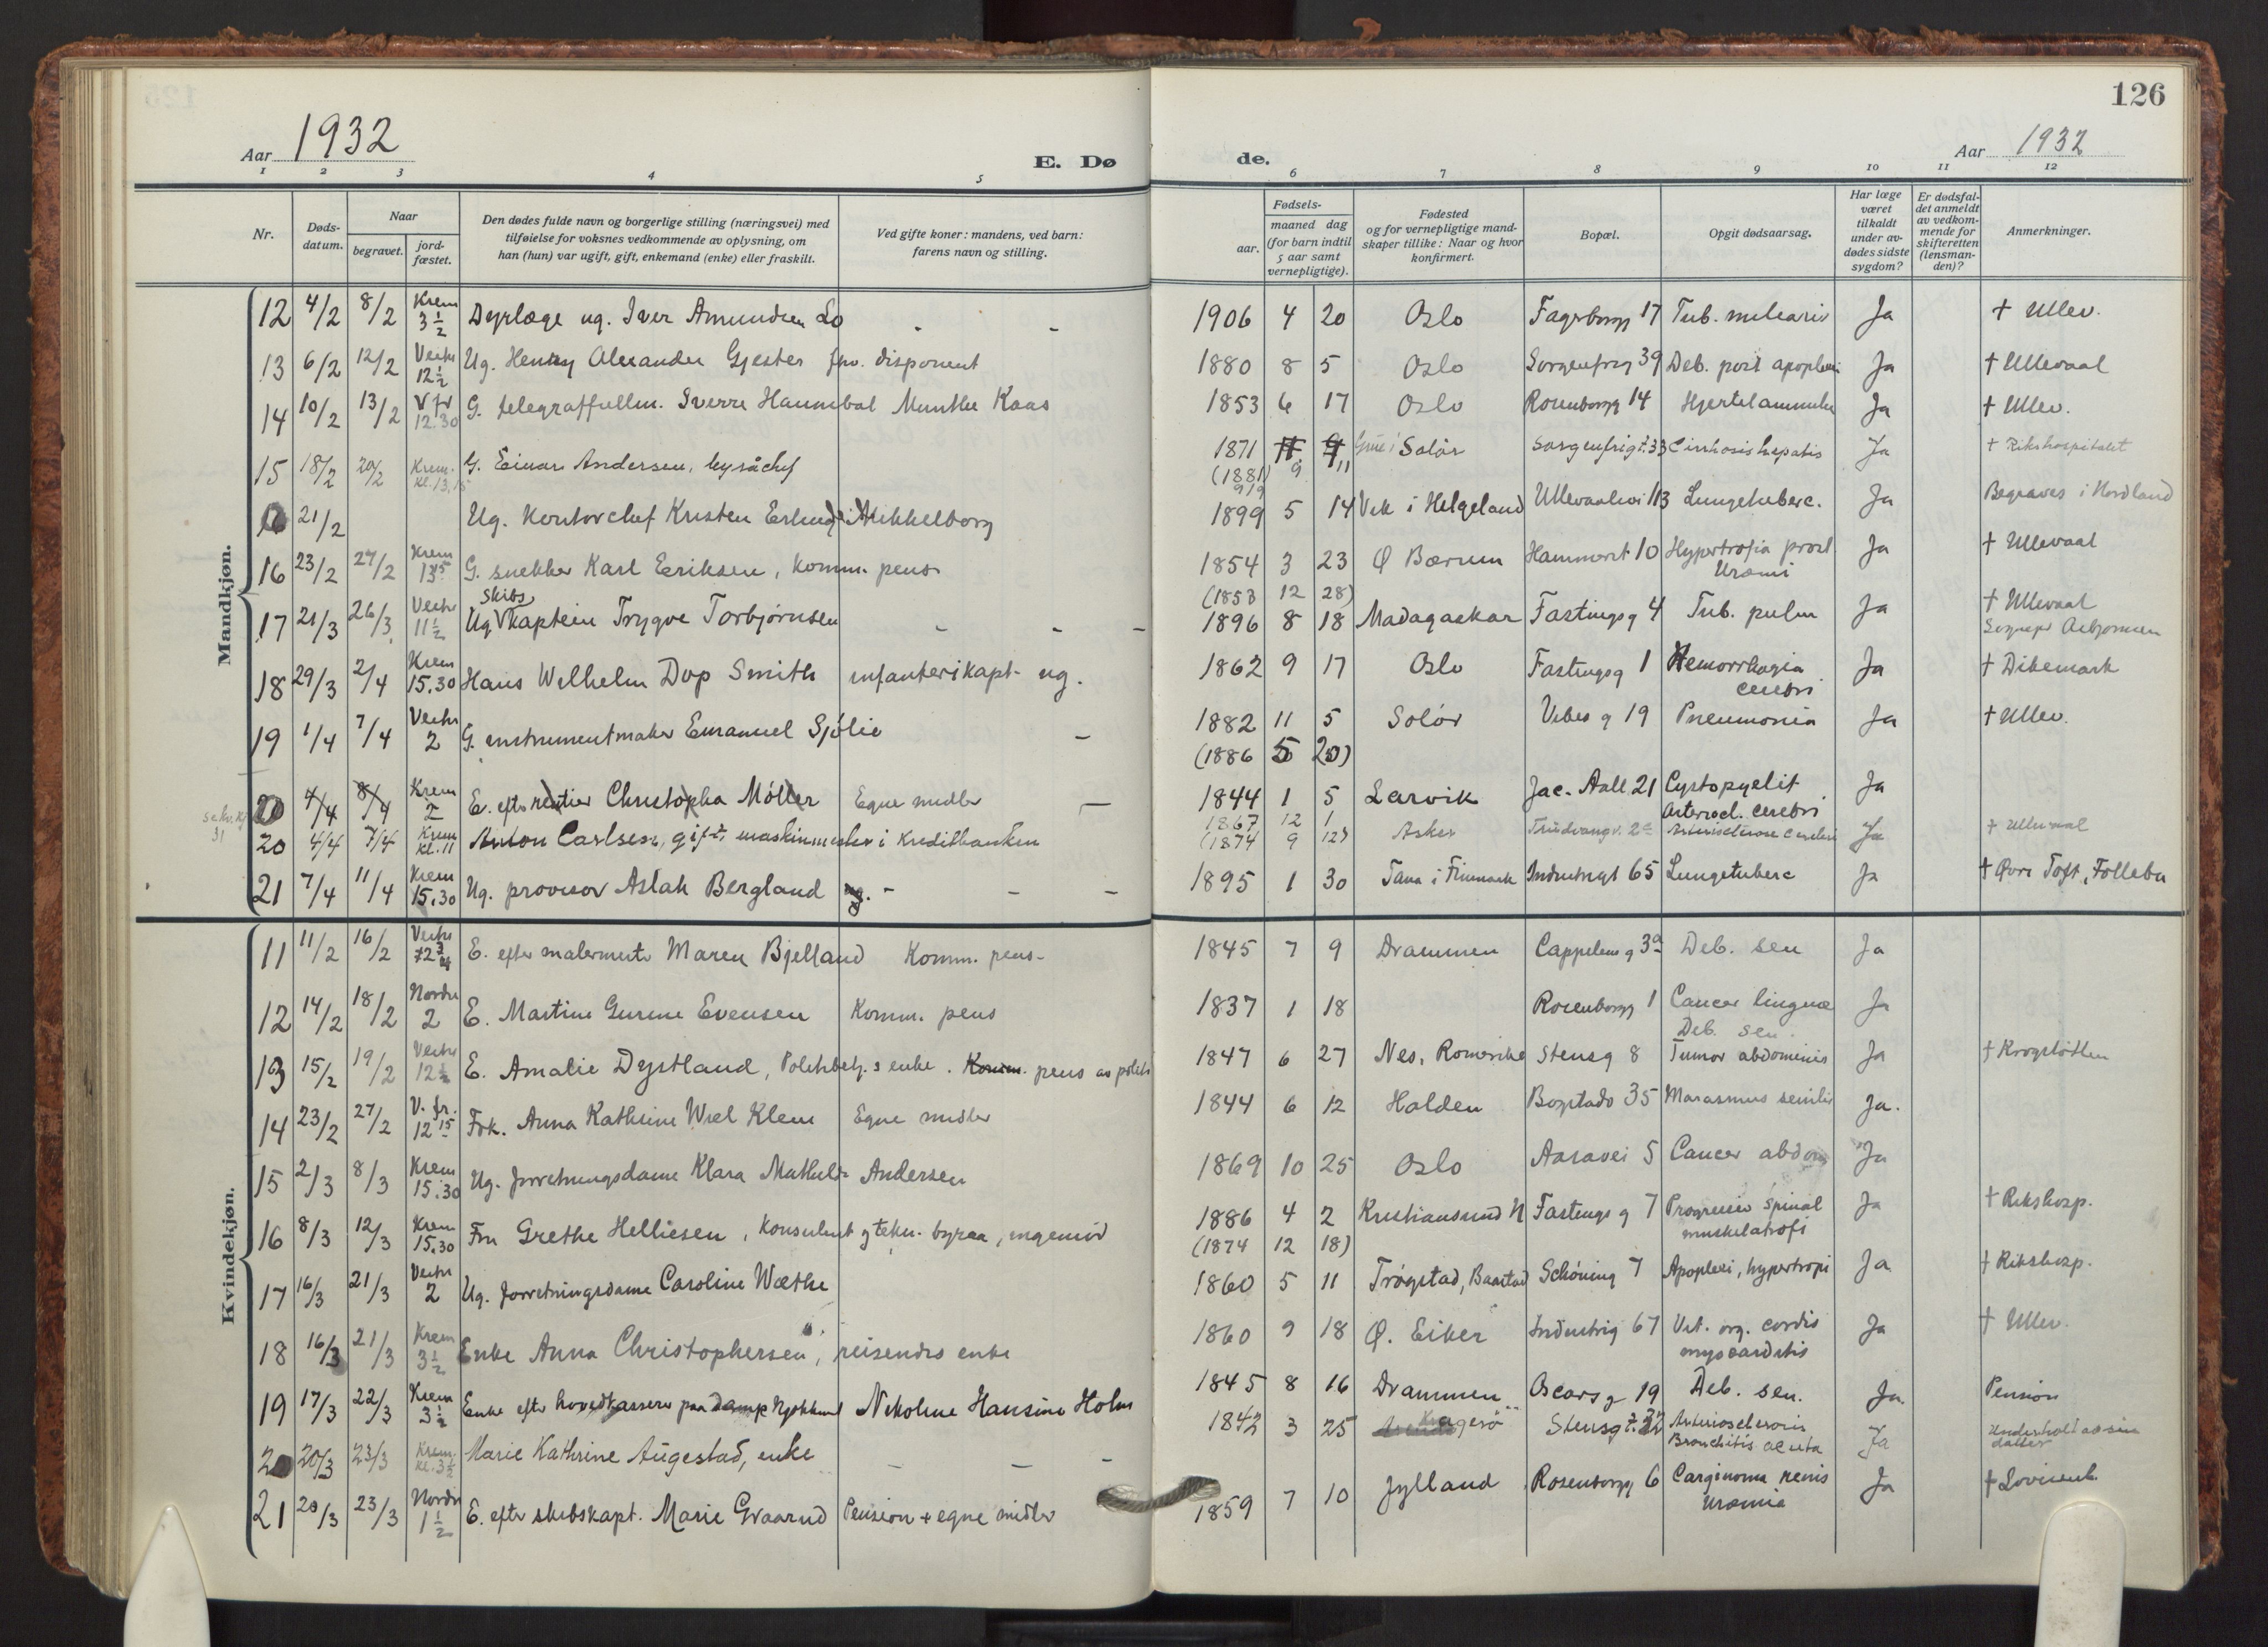 126
Aar 1932
E. Dø
de.
Aar 1932
1 2 3 4 5 6 7 8 9 10 11 12
Nr.
Døds-
datum.
Naar
begravet.
jord-
fæstet.
Den dødes fulde navn og borgerlige stilling (næringsvei) med
tilføielse for voksnes vedkommende av oplysning, om
han (hun) var ugift, gift, enkemand (enke) eller fraskilt.
Ved gifte koner: mandens, ved barn:
farens navn og stilling.
Fødsels-
aar.
maaned dag
(for barn indtil
5 aar samt
vernepligtige).
Fødested
og for vernepligtige mand-
skaper tillike: Naar og hvor
konfirmert.
Bopæl.
Opgit dødsaarsag.
Har læge
været
tilkaldt
under av-
dødes sidste
sygdom?
Er dødsfal-
det anmeldt
av vedkom-
mende for
skifteretten
(lensman-
den)?
Anmerkninger.
Mandkjøn.
12 4/2 8/2 Krem 3 1/2 Dyrlæge ug. Iver Amundsen Lo - - 1906 4 20 Oslo Fagerborgg 17 Tub. miliaris Ja † Ullev.
13 6/2 12/2 Vestre 12 1/2 Ug. Henry Alexander Gjester fhv. disponent 1880 8 5 Oslo Sorgenfrig 39 Deb. post apoplexi Ja † Ullevaal
14 10/2 13/2 V fr 12.30 G. telegraffullm. Sverre Hannibal Munthe Kaas 1853 6 17 Oslo Rosenborgg 14 Hjertelammelse Ja † Ullev.
15 18/2 20/2 Krem. kl. 13,15 G. Einar Andersen, byråchef 1871 9 11 Grue i Solør Sorgenfrigt. 33 Cirrhosis hepatis Ja † Rikshospitalet
(1881
9/9
21/2 Ug. Kontorchef Kristen Erlings Mikkelborg 1899 5 14 Vik i Helgeland Ullevaalvei 113 Lungetuberc. Ja Begraves i Nordland
16 23/2 27/2 Krem 13 15 G. snekker Karl Eriksen, komm. pens. 1854 3 23 Ø Bærum Hammerst 10 Hypertrofia prost. Uræmi Ja † Ullevaal
(1853 12 28)
17 21/3 26/3 Vestre 11 1/2 Ug Skibskaptein Trygve Torbjørnsen - - - 1896 8 18 Madagaskar Fastingsg 4 Tub. pulm Ja † Ullevaal
18 29/3 2/4 Krem 15.30 Hans Wilhelm Dop Smith infanterikapt. ug. 1862 9 17 Oslo Fastingsg 1 Hemorrhagia cerebri Ja † Dikemark
19 1/4 7/4 Vestre 2 G. instrumentmaker Emanuel Sjølie - 1882 11 5 Solør Vibes g 19 Pneumonia Ja † Ullev.
(1886 5 20)
20 4/4 8/4 Krem 2 E. efter rentier Christopha Möller Egne midler - 1844 1 5 Larvik Jac. Aall 21 Cystopyelit Arteriocl. cerebri Ja
20 4/4 7/4 Krem kl. 11 Anton Carlsen, gift, maskinmester i Kreditbanken 1867 12 1 Asker Trudvangv. 2 Arteriosclerose cerebri Ja † Ullevaal
(1874 9 12)
21 7/4 11/4 Krem 15.30 Ug. provisor Aslak Bergland - - - 1895 1 30 Tana i Finmark Industrigt 65 Lungetuberc Ja † Øvre Toft, Follebu
Kvindekjøn.
11 11/2 16/2 Vestre E. efter malermester Maren Bjelland Komm. pens. 1845 7 9 Drammen Cappelens g 3a Deb. sen Ja
12 14/2 18/2 Nordre 2 E. Martine Gurine Evensen Komm. pens 1837 1 18 Rosenborgg 1 Cancer linguæ Deb. sen. Ja
13 15/2 19/2 Vestre 12 1/2 E. Amalie Dystland, Politibetj.s enke. Komm. pens av politi 1847 6 27 Nes, Romerike Stensg 8 Tumor abdominis Ja † Krogstötten
14 23/2 27/2 V. fr. 12 15 Frk. Anna Kathrine Wiel Klem Egne midler 1844 6 12 Halden Bogstadv 35 Marasmus senilis Ja.
15 2/3 8/3 Krem 15.30 Ug. forretningsdame Klara Mathilde Andersen 1869 10 25 Oslo Aasavei 5 Cancer abdom Ja
16 8/3 12/3 Krem 15.30 Fru Grethe Helliesen, Konsulent g tekn. byraa, ingeniør 1886 4 2 Kristiansund N Fastings g 7 Progressiv spinal muskelatrofi Ja † Rikshosp.
(1874 12 18)
17 16/3 21/3 Vestre 2 Ug. forretningsdame Caroline Wæthe 1860 5 11 Trøgstad, Baastad Schöning 7 Apoplexi, hypertropi Ja † Rikshosp.
18 16/3 21/3 Krem 3 1/2 Enke Anna Christophersen, reisendes enke 1860 9 18 Ø. Eiker Industrig 67 Vit. org. cordis myocarditis Ja † Ullev.
19 17/3 22/3 Krem 3 1/2 Enke efter hovedkasserer paa Dampkjøkkenet Nikoline Hansine Holm 1845 8 16 Drammen Oscarsg 19 Deb. sen. Ja Pension
20 20/3 23/3 Krem. kl. 3 1/2 Marie Kathrine Augestad, enke - - - 1842 3 25 Kragerø Stensgt. 32 Arteriosclerosis Bronchitis acuta Ja Underholdt av sin datter
21 20/3 23/3 Nordre 1 1/2 E. efter skibskapt. Marie Graarud Pension + egne midler 1859 7 10 Jylland Rosenborgg 6 Carginoma renis Uræmie Ja † Lovisenb.